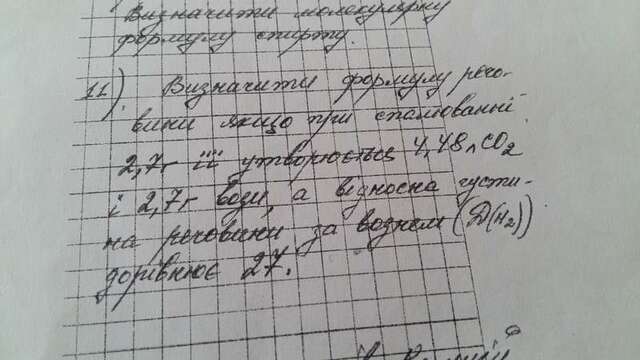 Визначити молекулярну
формулу спирту.
11) Визначити формулу речо-
вини якщо при спалюванні
2,7 г її утворилось 4,48 л CO2
і 2,7 г води, а відносна густи-
на речовини за воднем (D(H2))
дорівнює 27.